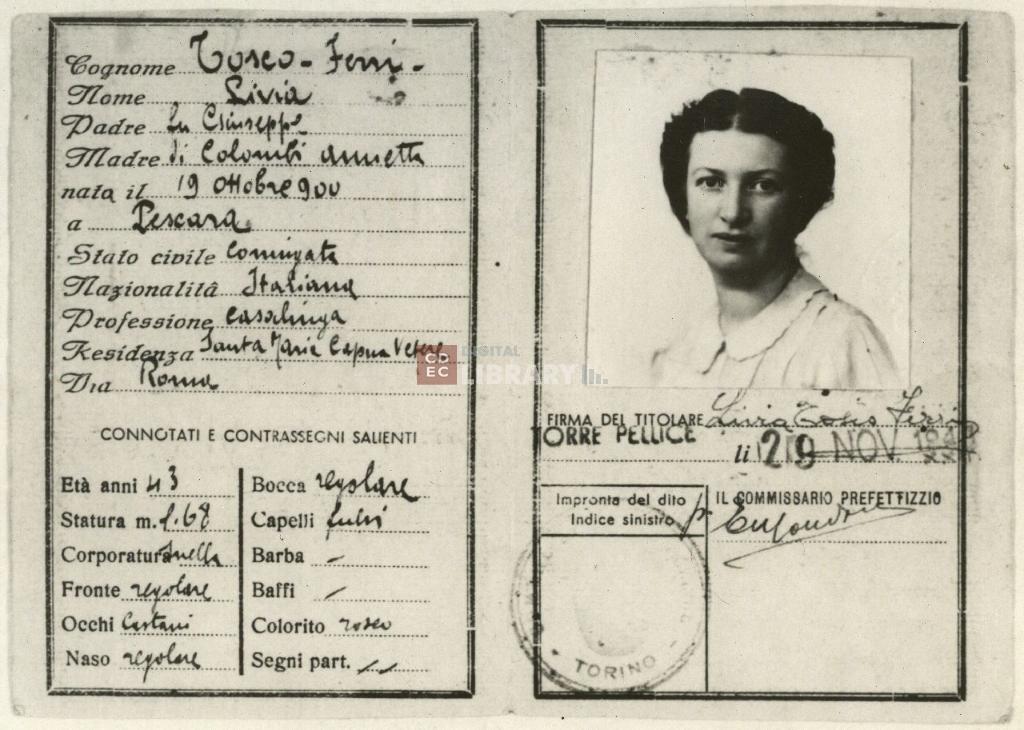 Cognome Tosco-Ferri-
Nome Livia
Padre fu Giuseppe
Madre di Colombi Annetta
nata il 19 Ottobre 900
a Pescara
Stato civile Coniugata
Nazionalità Italiana
Professione casalinga
Residenza Santa Maria Capua Vetere
Via Roma
CONNOTATI E CONTRASSEGNI SALIENTI
Età anni 43
Statura m. 1.68
Corporatura snella
Fronte regolare
Occhi Castani
Naso regolare
Bocca regolare
Capelli fulvi
Barba –
Baffi –
Colorito roseo
Segni part. –
CDEC DIGITAL LIBRARY
FIRMA DEL TITOLARE Livia Ferri
TORRE PELLICE
li 29 NOV
Impronta del dito
Indice sinistro
IL COMMISSARIO PREFETTIZIO
TORINO